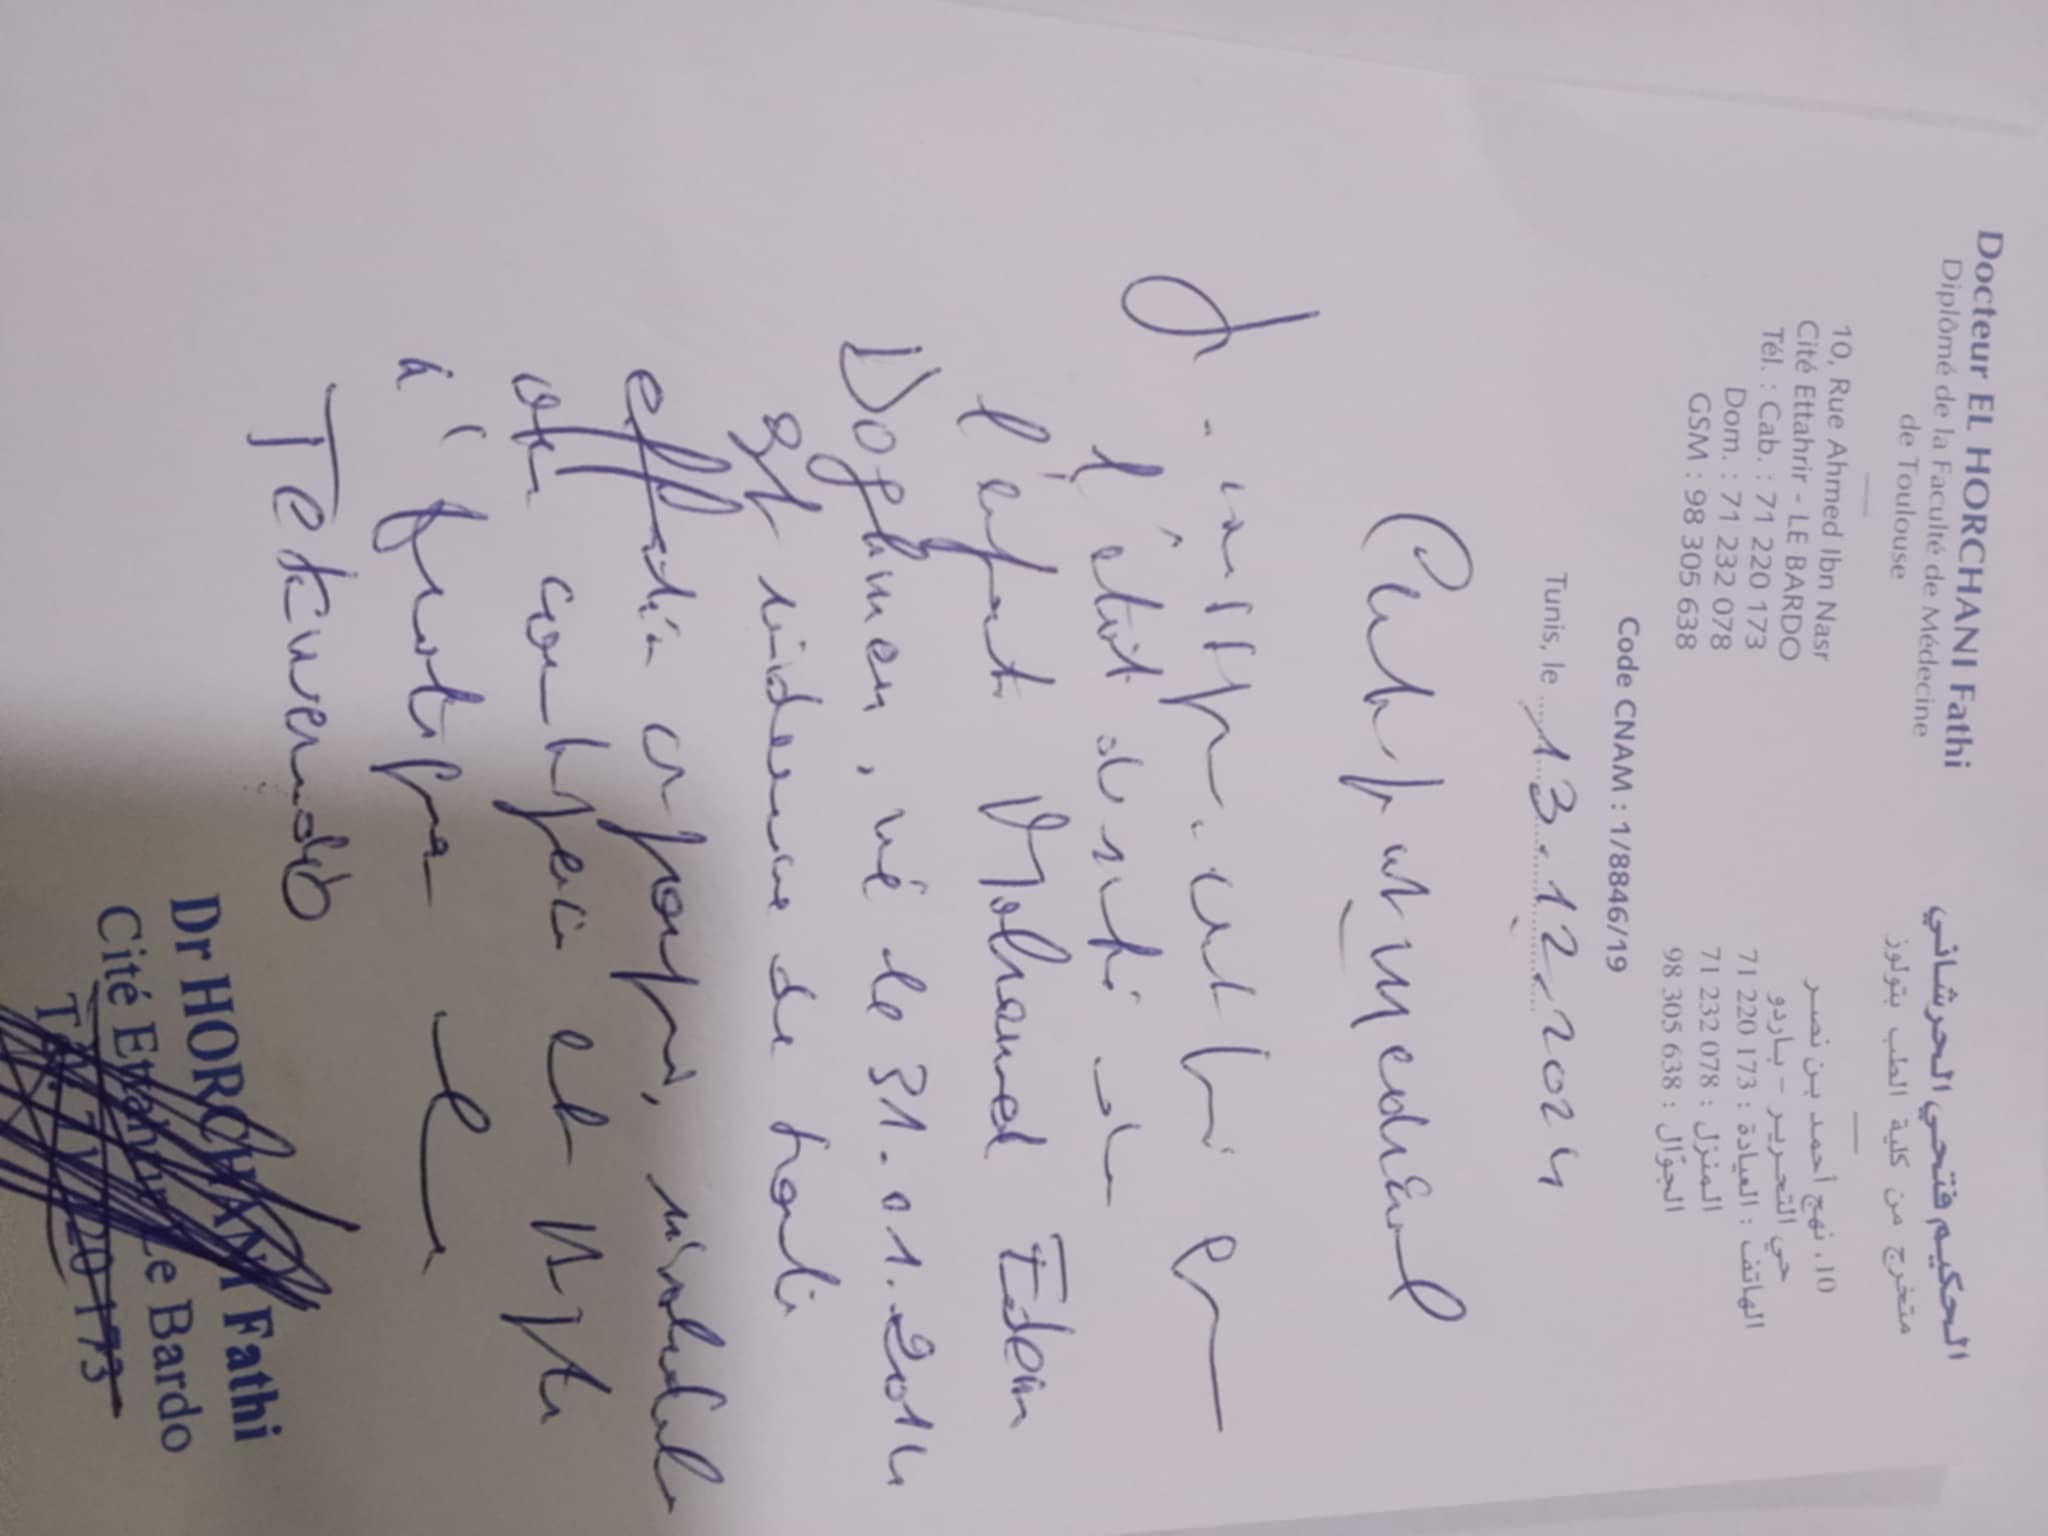 Docteur EL HORCHANI Fathi
Diplômé de la Faculté de Médecine
de Toulouse
10, Rue Ahmed Ibn Nasr
Cité Ettahrir - LE BARDO
Tél. : Cab. : 71 220 173
Dom. : 71 232 078
GSM : 98 305 638
الحكيم فتحي الحرشاني
متخرج من كلية الطب بتولوز
10، نهج أحمد بن نصر
حي التحرير - باردو
الهاتف : العيادة : 71 220 173
المنزل : 71 232 078
الجوّال : 98 305 638
Code CNAM : 1/8846/19
Tunis, le 13.12.2024
Certificat Medical
l'état de santé de
l'enfant Mohamed Eden
Doghmen, né le 31.01.2014
est indemne de toute
affection
contagieuse et est apte
à pratiquer le
Tekwendo
Dr HORCHANI Fathi
Cité Ettahrir Le Bardo
Tél: 71 220 173